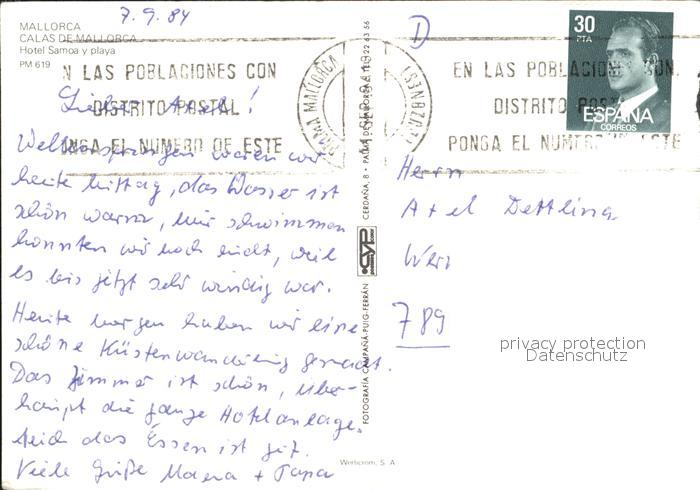 7.9.84
MALLORCA
CALAS DE MALLORCA
Hotel Samoa y playa
PM 619
N LAS POBLACIONES CON
DISTRITO POSTAL
PONGA EL NUMERO DE ESTE
Lieber Axel!
waren wir
heute Mittag, das Wasser ist
schön warm, nur schwimmen
konnten wir noch nicht, weil
es bis jetzt sehr windig war.
Heute morgen haben wir eine
schöne Küstenwanderung gemacht.
Das Zimmer ist schön, über-
haupt die ganze Hotelanlage.
Auch das Essen ist gut.
Viele Grüße Mama + Papa
FOTOGRAFÍA CAMPAÑÁ-PUIG-FERRÁN
CYP
CERDAÑA, 8 - PALMA DE MALLORCA
Werticrom, S. A
PALMA MALLORCA
D
EN LAS POBLACIONES CON
DISTRITO POSTAL
PONGA EL NUMERO DE ESTE
30
PTA
ESPAÑA
CORREOS
Herrn
Axel Dettling
789
privacy protection
Datenschutz